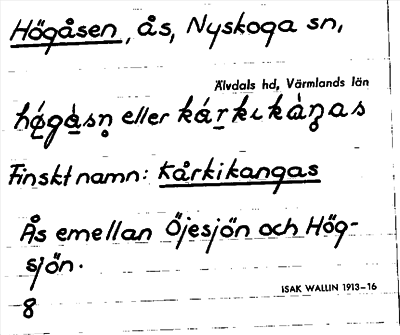 Högåsen, ås, Nyskoga sn,
Älvdals hd, Värmlands län
hǿgàsn̥ eller kárkıkàŋas
Finskt namn: Kårkikangas
Ås emellan Öjesjön och Hög-
sjön.
ISAK WALLIN 1913-16
8